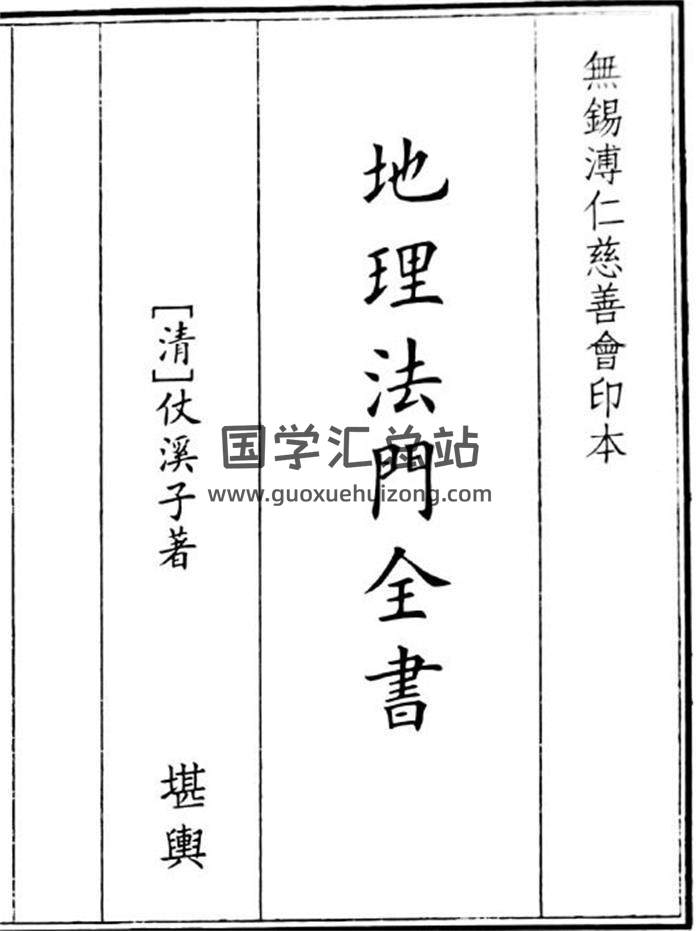 無錫溥仁慈善會印本
地理法門全書
[清]仗溪子著
堪輿
国学汇总站
www.guoxuehuizong.com